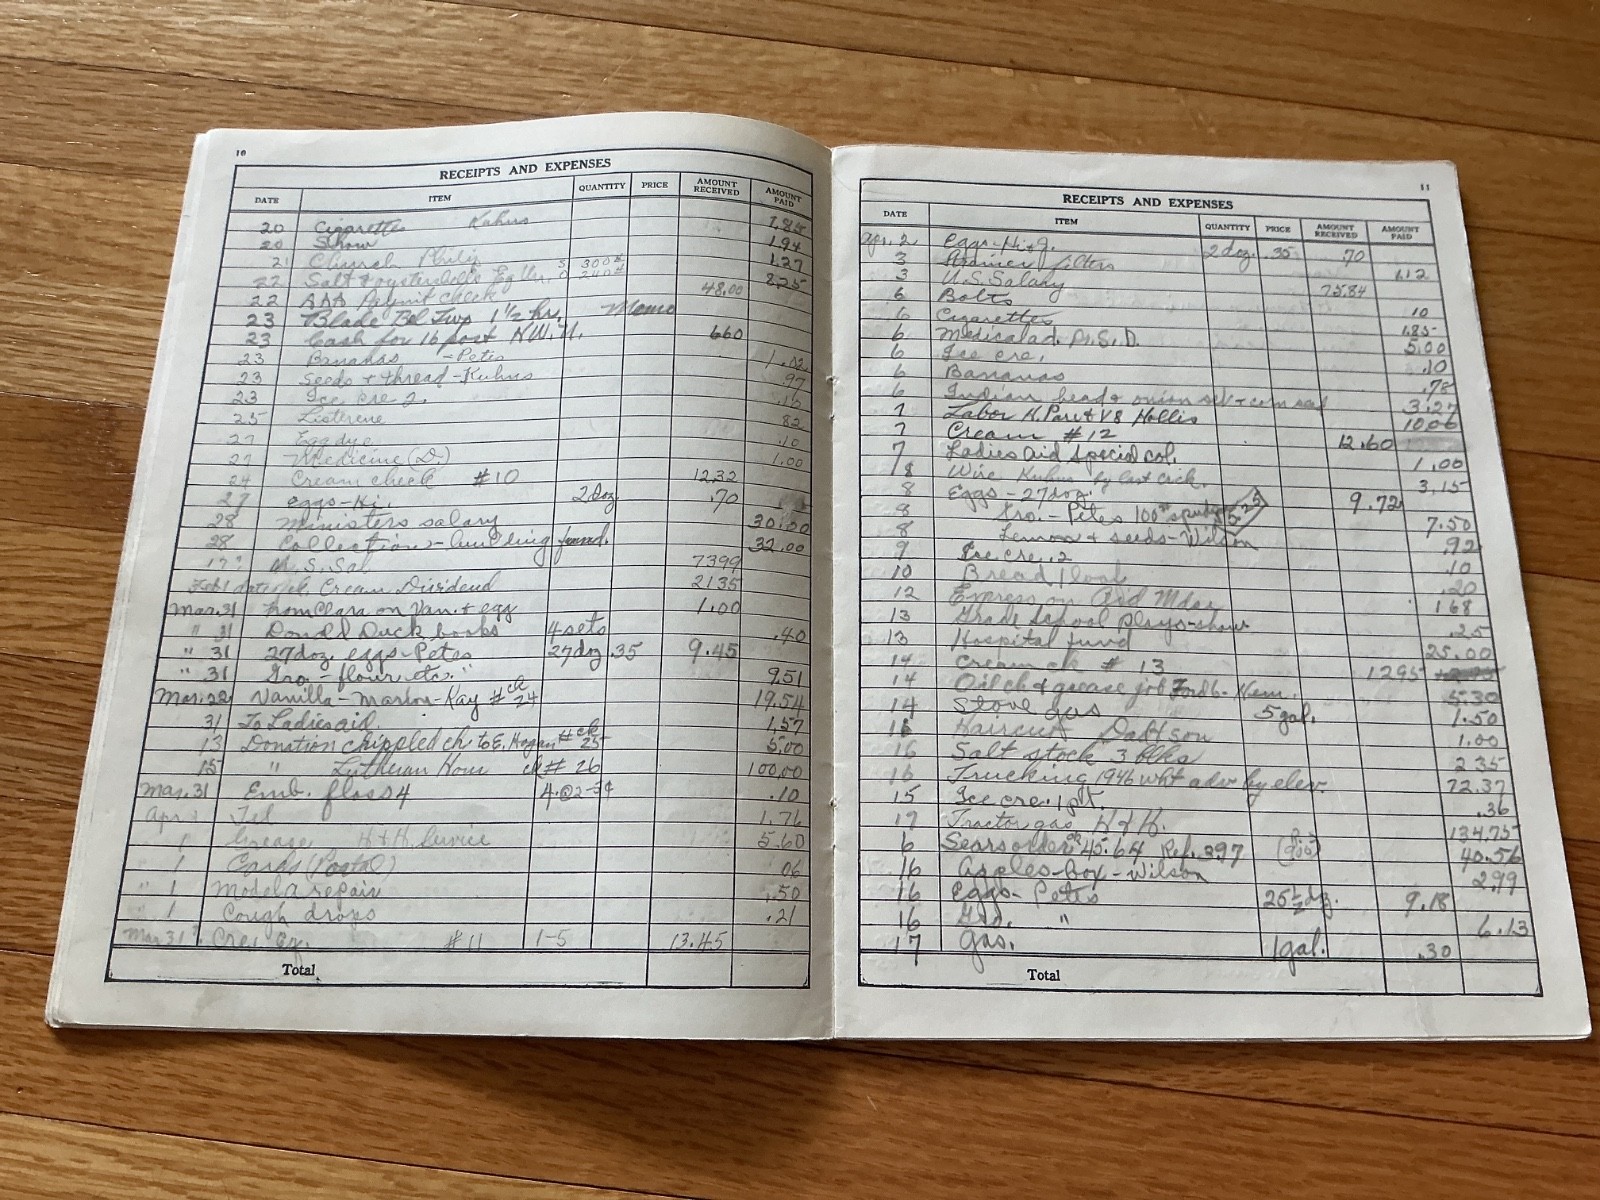 10
RECEIPTS AND EXPENSES
DATE ITEM QUANTITY PRICE AMOUNT RECEIVED AMOUNT PAID
20 Cigarettes Kuhns 1.85
20 Show 1.94
21 Church Philip 1.27
22 Salt & oystershells 300# 240# 8.25
22 AAA Paymit check 48.00
23 Blade Bel Twp 1 1/2 hrs. Memo
23 Cash for 16 post N.W.H. 660
23 Bananas - Petes 1.02
23 Seeds & thread - Kuhns 97
23 Ice cre 2. .15
25 Listerene 82
27 Egg dye .10
27 Medicine (D) 1.00
24 Cream check #10 1232
27 eggs - Hi 2 doz. .70
28 Ministers salary 30.00
28 Collection - building fund. 32.00
17 U.S. Sal 7399
Feb 1 ck. Cream Dividend 2135
Mar. 31 from Clara on Van. & egg 1.00
" 31 Donald Duck books 4 sets .40
" 31 27 doz. eggs - Petes 27 doz .35 9.45
" 31 Gro. - flour etc. " 9.51
Mar. 22 Vanilla - Marion - Kay # ck 24 19.54
31 To Ladies aid 1.57
13 Donation chippled ch. to E. Hogan # ck 25 5.00
15 " Lutheran Hour ck # 26 100.00
Mar. 31 Emb. floss 4 4 @ 2-5¢ .10
Apr. 1 Tel 1.76
1 Grease H & H Service 5.60
1 Cards (Postal) 06
" 1 Model A repair .50
" 1 Cough drops .21
Mar 31 Cre. Eq. #11 1-5 13.45
Total
11
RECEIPTS AND EXPENSES
DATE ITEM QUANTITY PRICE AMOUNT RECEIVED AMOUNT PAID
Apr. 2 Eggs - Hi & J. 2 doz. .35 .70
3 filters 1.12
3 U.S. Salary 75.84
6 Bolts 10
6 Cigarettes 1.85
6 Medical ad. Dr. S. D. 5.00
6 Ice cre. .10
6 Bananas .78
6 Indian head & onion set & corn seed 3.27
7 Labor H. Par & V8 Hollis 10.06
7 Cream #12 12.60
7 Ladies aid special col. 1.00
8 Wire Kuhns by last cick. 3.15
8 Eggs - 27 doz. 9.72
8 Gro. - Petes 100# spuds 5.25 7.50
8 Lemon & seeds - Wilson .92
9 Ice cre. 2 .10
10 Bread 1 loaf .20
12 Express on Mdse 1.68
13 Grade School plays - show .25
13 Hospital fund 25.00
14 Cream ck # 13 1295
14 Oil ch & grease job Ford 6 - Hem. 5.30
14 Stove gas 5 gal. 1.50
16 Haircut Dad & son 1.00
16 Salt stock 3 blks 2.35
16 Trucking 1946 wht adv by elev. 72.37
15 Ice cre. 1 pt. .36
17 Tractor gas H & H. 134.75
6 Sears order 45.64 Ref. 3.97 40.56
16 Apples - Box - Wilson 2.99
16 Eggs - Petes 25 1/2 dz. 9.18
16 Gro. " 6.13
17 Gas. 1 gal. .30
Total